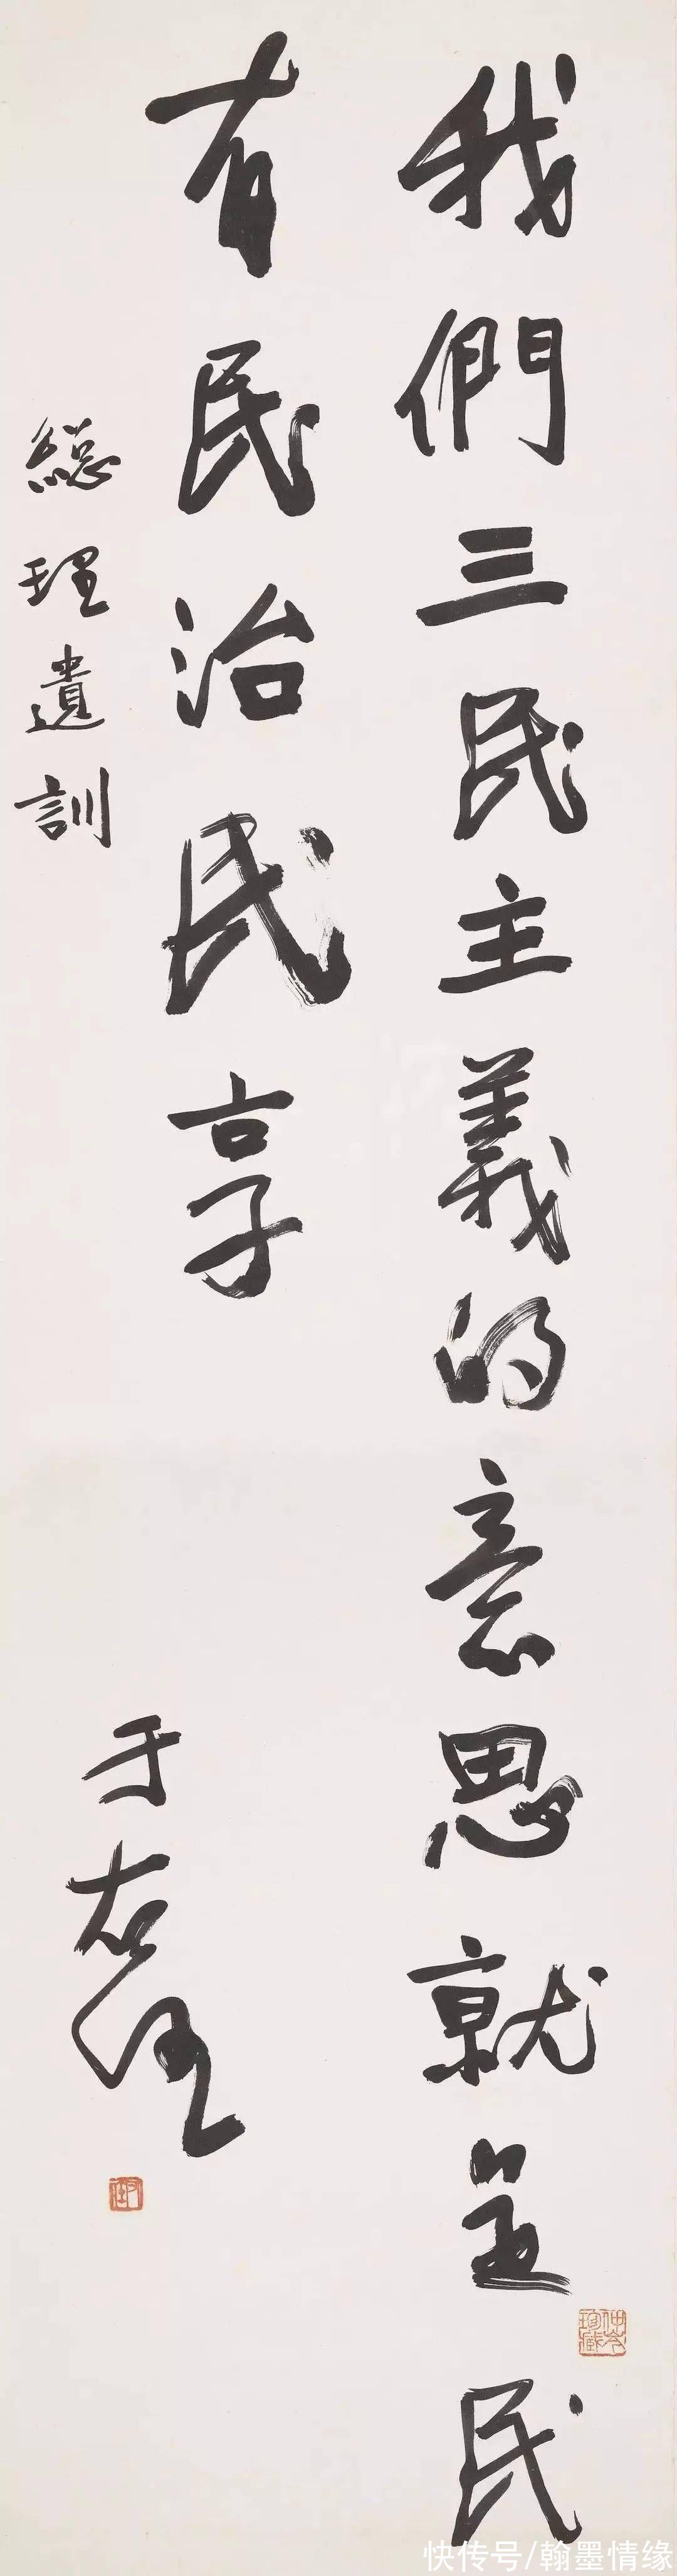 我們三民主義的意思就是民
有民治民享
總理遺訓
于右任
快传号/翰墨情缘